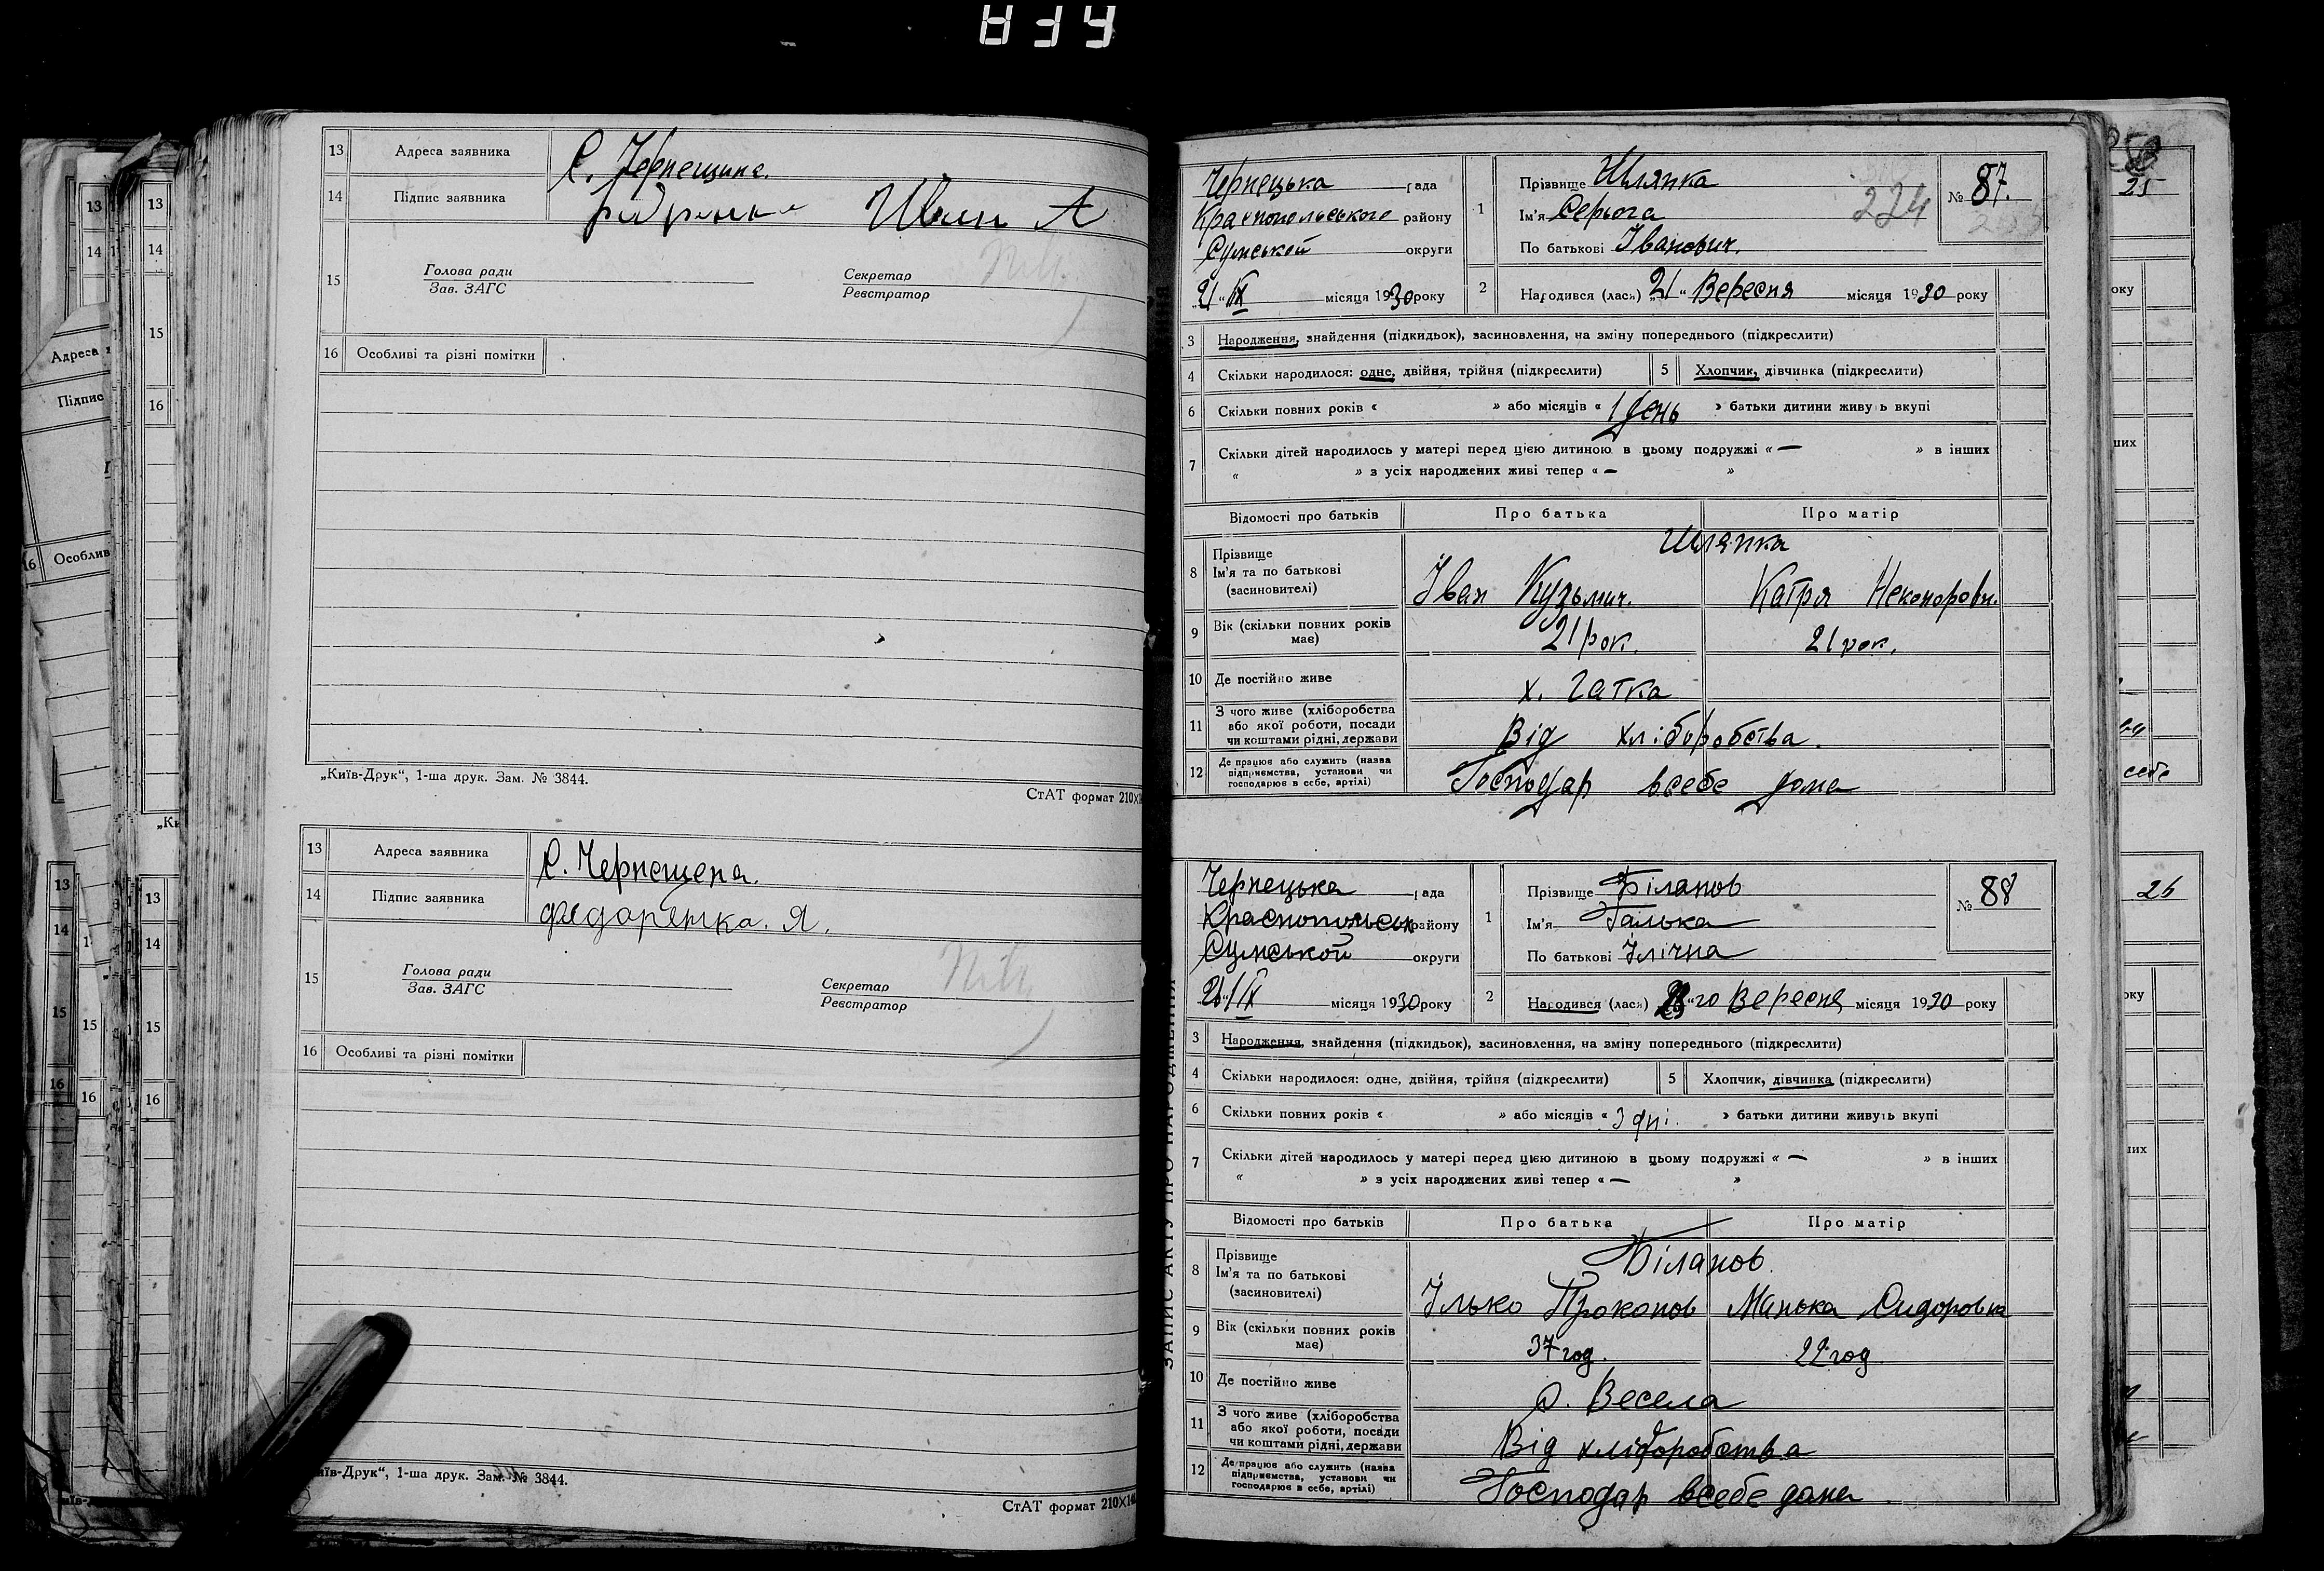 13 Адреса заявника С. Чернещина.
14 Підпис заявника Иван А
15 Голова ради Секретар
Зав. ЗАГС Реєстратор
16 Особливі та різні помітки
„Київ-Друк“, 1-ша друк. Зам. № 3844.
СтАТ формат 210×1
13 Адреса заявника С. Чернещена.
14 Підпис заявника Федоренка. Я.
15 Голова ради Секретар
Зав. ЗАГС Реєстратор
16 Особливі та різні помітки
їв-Друк“, 1-ша друк. Зам. № 3844.
СтАТ формат 210×14
Чернецька рада
Краснопольського району
Сумської округи
„21“ IX місяця 1930 року
1 Прізвище Шляпка
Ім'я Серьога
По батькові Іванович.
224
№ 87.
2 Народився (лась) „21“ Вересня місяця 1930 року
3 Народження, знайдення (підкидьок), засиновлення, на зміну попереднього (підкреслити)
4 Скільки народилося: одне, двійня, трійня (підкреслити) 5 Хлопчик, дівчинка (підкреслити)
6 Скільки повних років « » або місяців « 1 день » батьки дитини живуть вкупі
7 Скільки дітей народилось у матері перед цією дитиною в цьому подружжі « — » в інших
« » з усіх народжених живі тепер « — »
Відомості про батьків Про батька Про матір
8 Прізвище Шляпка
Ім'я та по батькові Іван Кузьмич. Катря Неконорови.
(засиновителі)
9 Вік (скільки повних років має) 21 рок. 21 рок.
10 Де постійно живе х. Гатка
11 З чого живе (хліборобства
або якої роботи, посади
чи коштами рідні, держави Від хліборобства.
12 Де працює або служить (назва
підприємства, установи чи
господарює в себе, артілі) Господар всебе дома
ЗАПИС АКТУ ПРО НАРОДЖЕННЯ
Чернецька рада
Краснопольськ району
Сумської округи
26 / IX місяця 1930 року
1 Прізвище Біланов
Ім'я Галька
По батькові Ілічна
№ 88
2 Народився (лась) 23 “го Вересня місяця 1930 року
3 Народження, знайдення (підкидьок), засиновлення, на зміну попереднього (підкреслити)
4 Скільки народилося: одне, двійня, трійня (підкреслити) 5 Хлопчик, дівчинка (підкреслити)
6 Скільки повних років « » або місяців « 3 дні. » батьки дитини живуть вкупі
7 Скільки дітей народилось у матері перед цією дитиною в цьому подружжі « — » в інших
« » з усіх народжених живі тепер « — »
Відомості про батьків Про батька Про матір
8 Прізвище Біланов.
Ім'я та по батькові Ілько Прокопов Манька Сидоровна
(засиновителі)
9 Вік (скільки повних років має) 37 год. 22 год.
10 Де постійно живе с. Весела
11 З чого живе (хліборобства
або якої роботи, посади
чи коштами рідні, держави Від хліборобства
12 Де працює або служить (назва
підприємства, установи чи
господарює в себе, артілі) Господар всебе дома
25
26